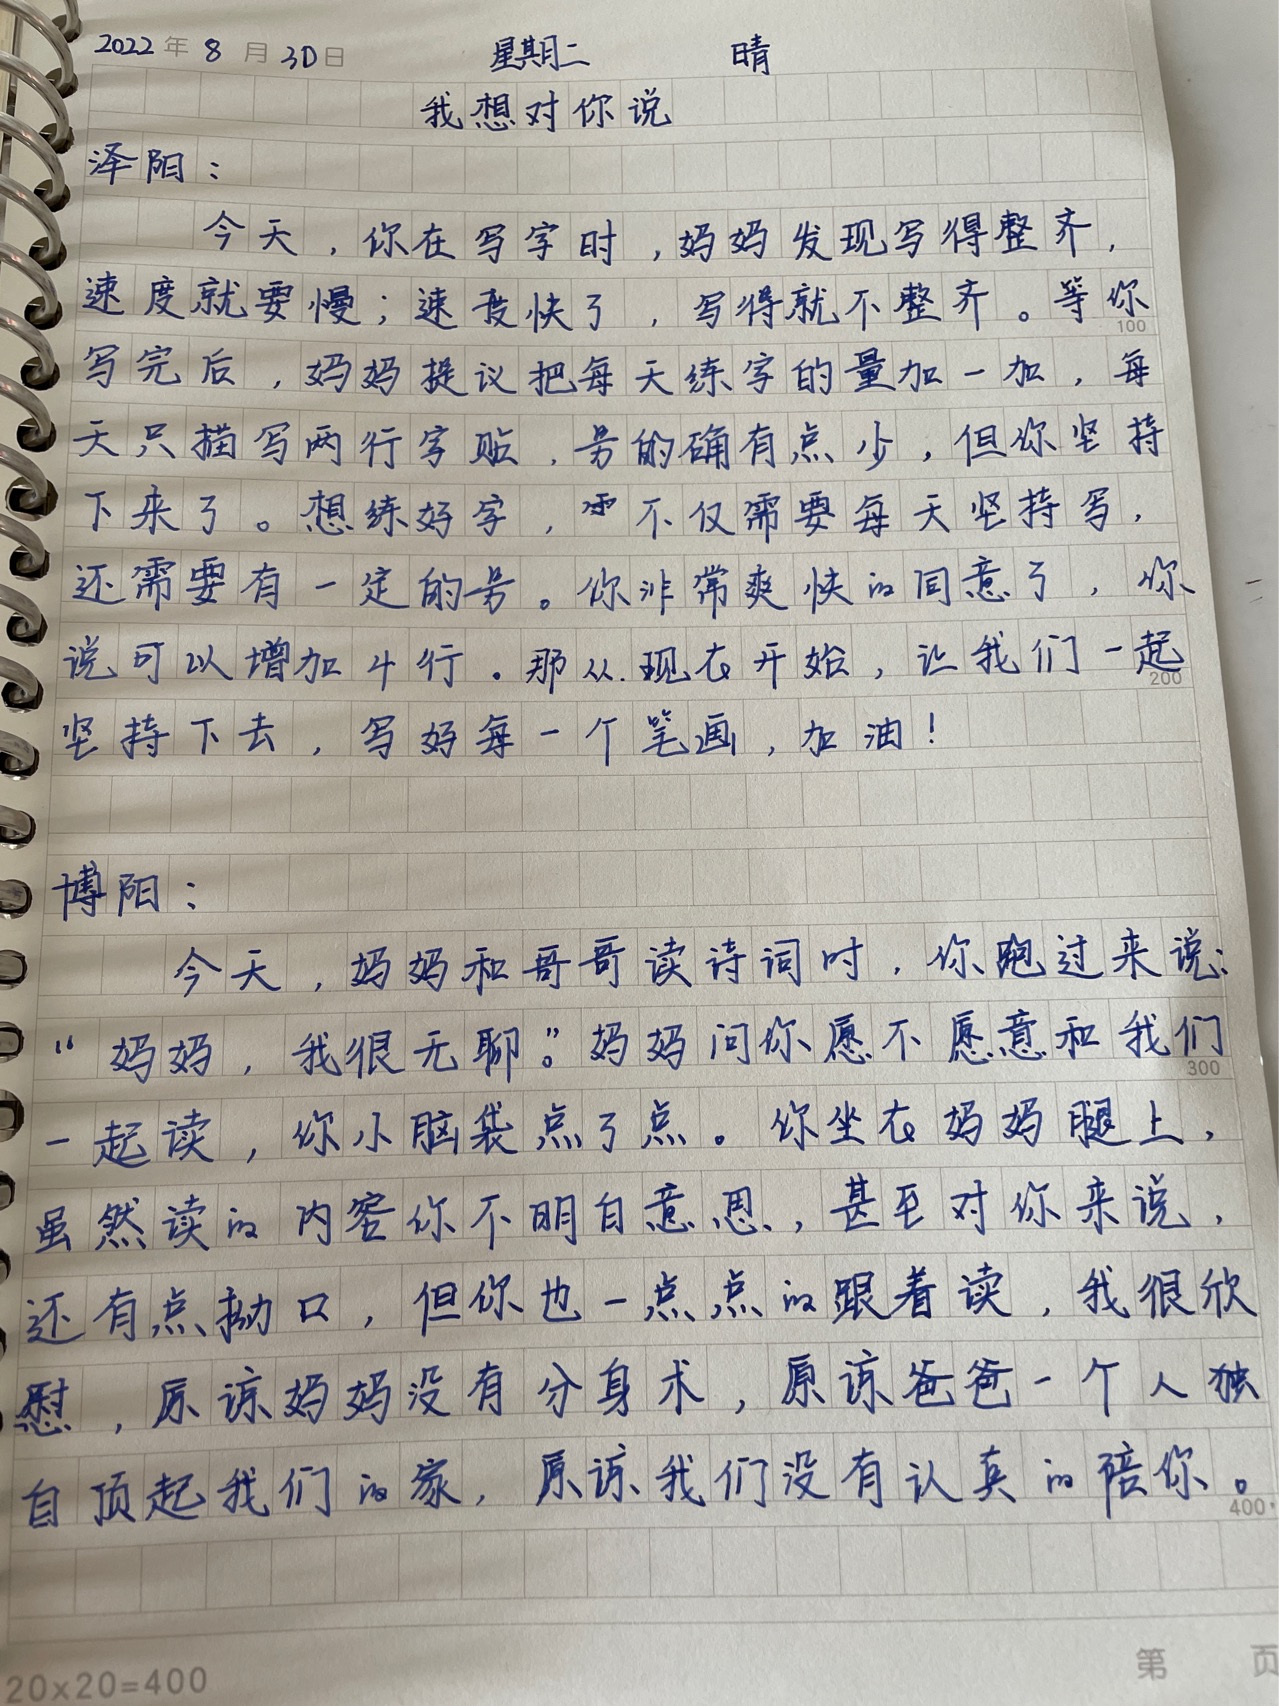 2022年8月30日 星期二 晴
我想对你说
泽阳：
今天，你在写字时，妈妈发现写得整齐，
速度就要慢；速度快了，写得就不整齐。等你
100
写完后，妈妈提议把每天练字的量加一加，每
天只描写两行字贴，量的确有点少，但你坚持
下来了。想练好字，不仅需要每天坚持写，
还需要有一定的量。你非常爽快的同意了，你
说可以增加4行。那从现在开始，让我们一起
200
坚持下去，写好每一个笔画，加油！
博阳：
今天，妈妈和哥哥读诗词时，你跑过来说：
“妈妈，我很无聊。”妈妈问你愿不愿意和我们
300
一起读，你小脑袋点了点。你坐在妈妈腿上，
虽然读的内容你不明白意思，甚至对你来说，
还有点拗口，但你也一点点的跟着读，我很欣
慰，原谅妈妈没有分身术，原谅爸爸一个人独
自顶起我们的家，原谅我们没有认真的陪你。
400
20×20=400 第 页